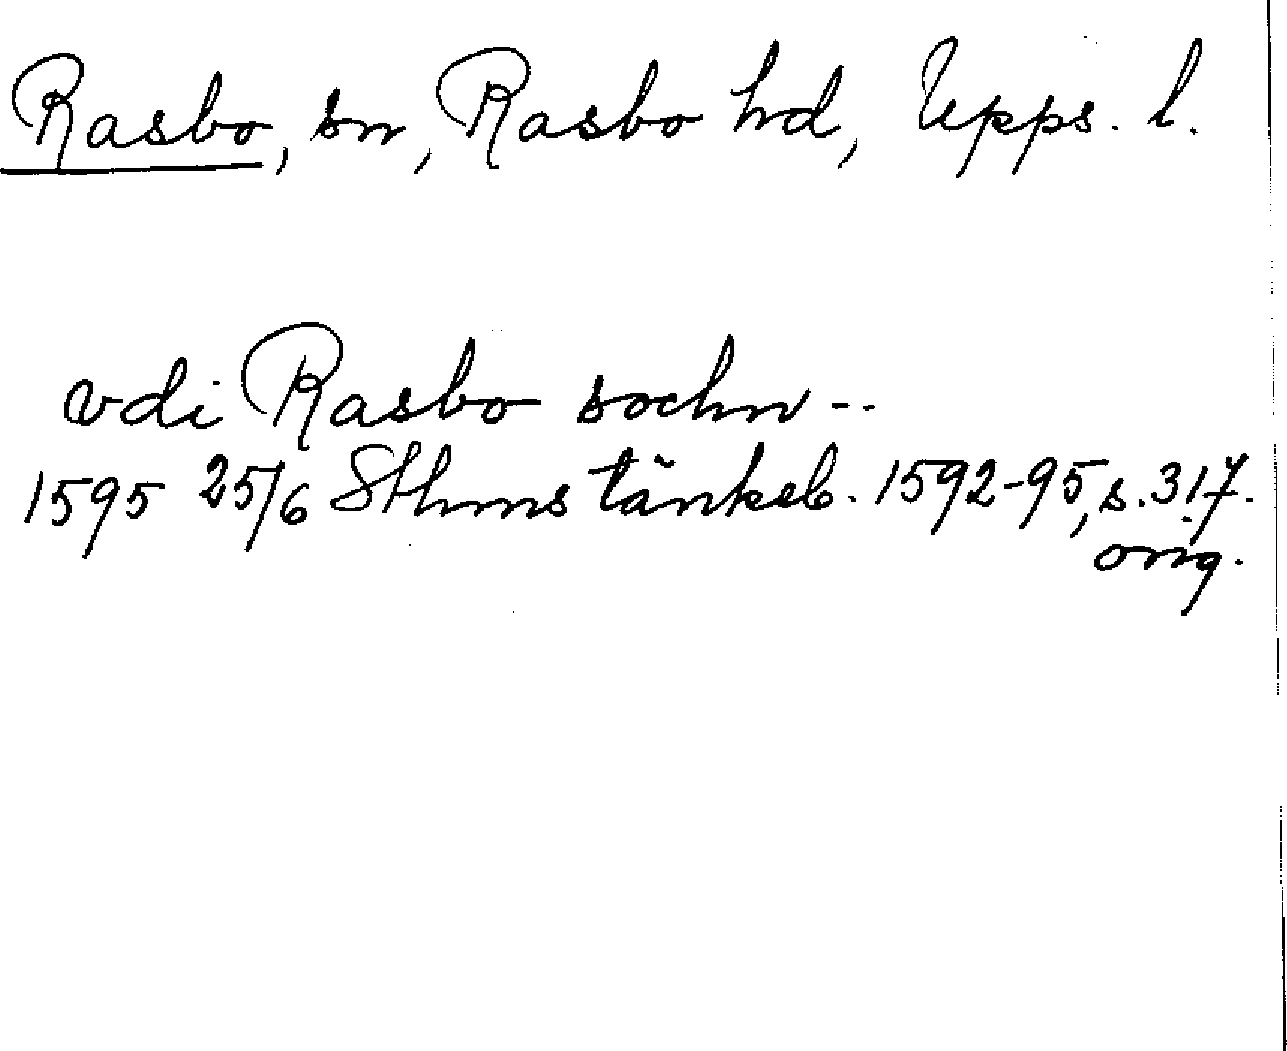 Rasbo, sn, Rasbo hd, Upps. l.
vdi Rasbo sochn --
1595 25/6 Sthms tänkeb. 1592-95, s. 317.
orig.